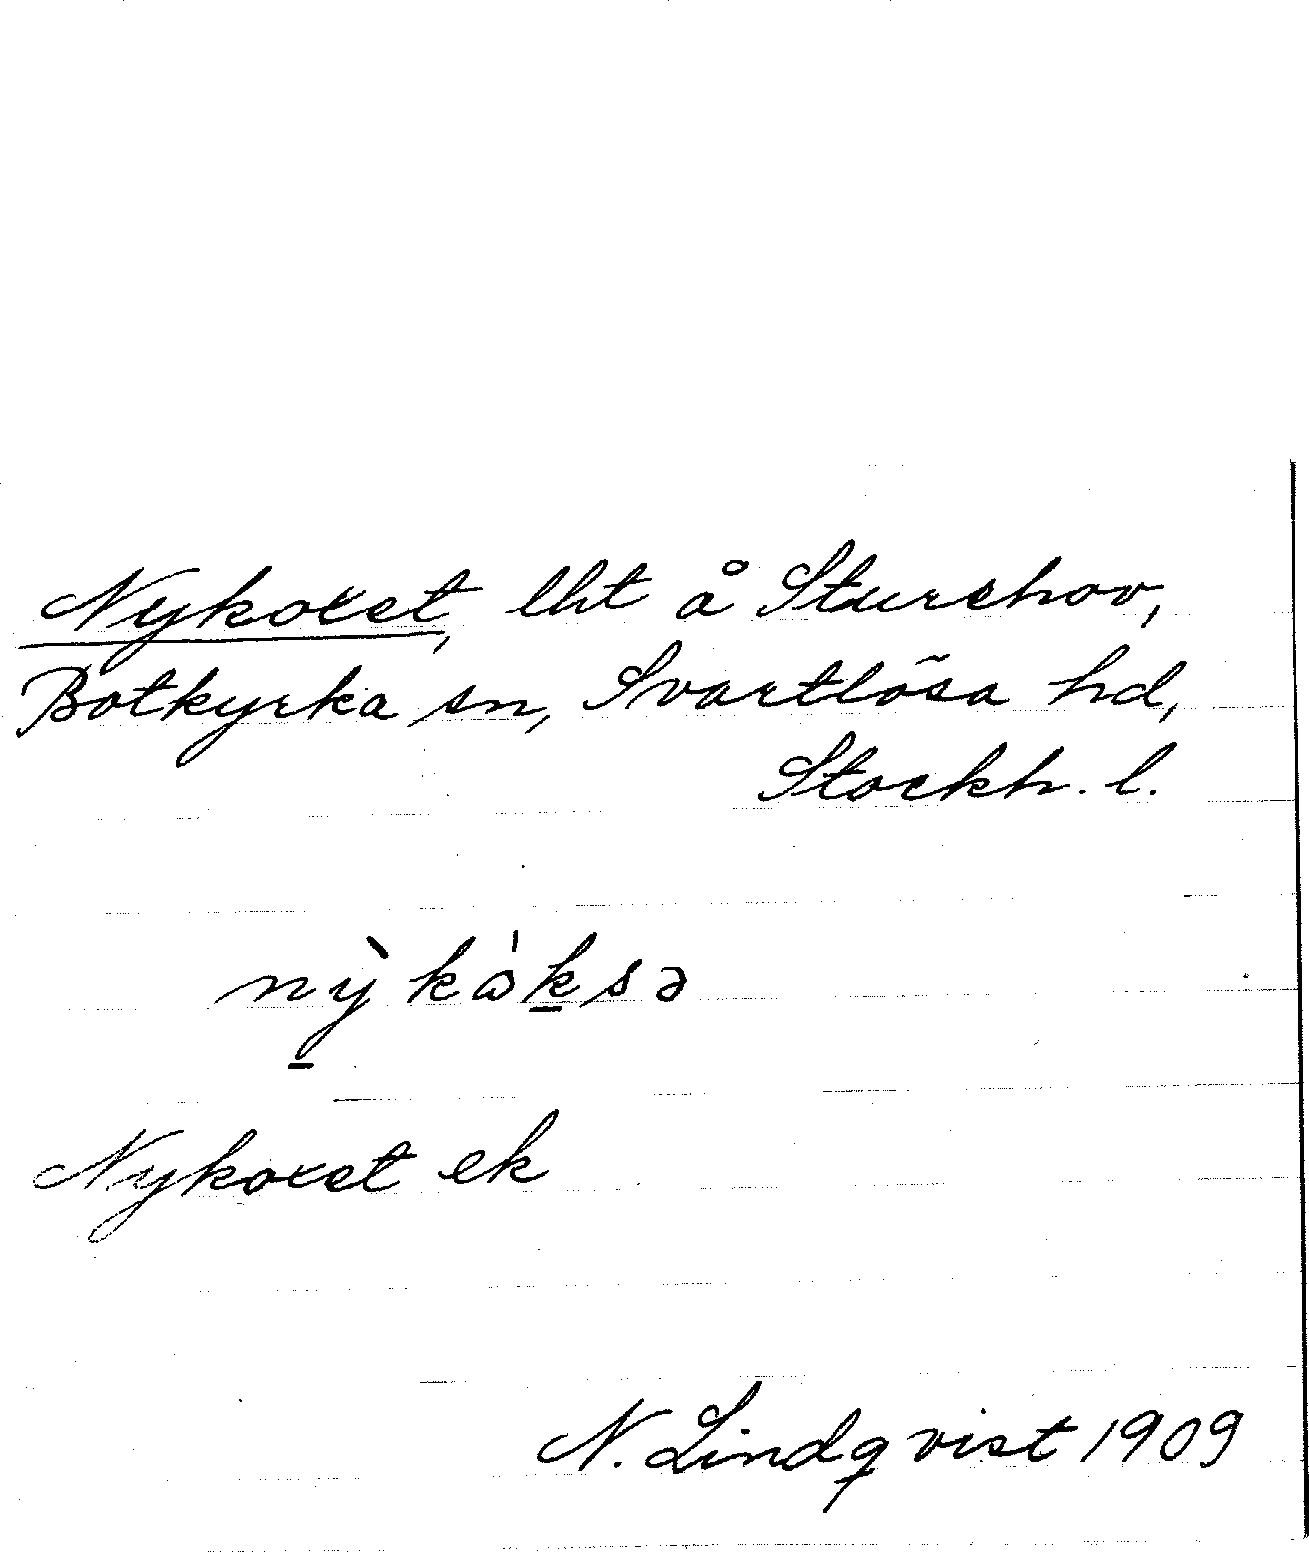 Nykoxet, lht å Sturehov,
Botkyrka sn, Svartlösa hd,
Stockh. l.
nỳ̱kὰˈḵsə
Nykoxet ek
N. Lindqvist 1909